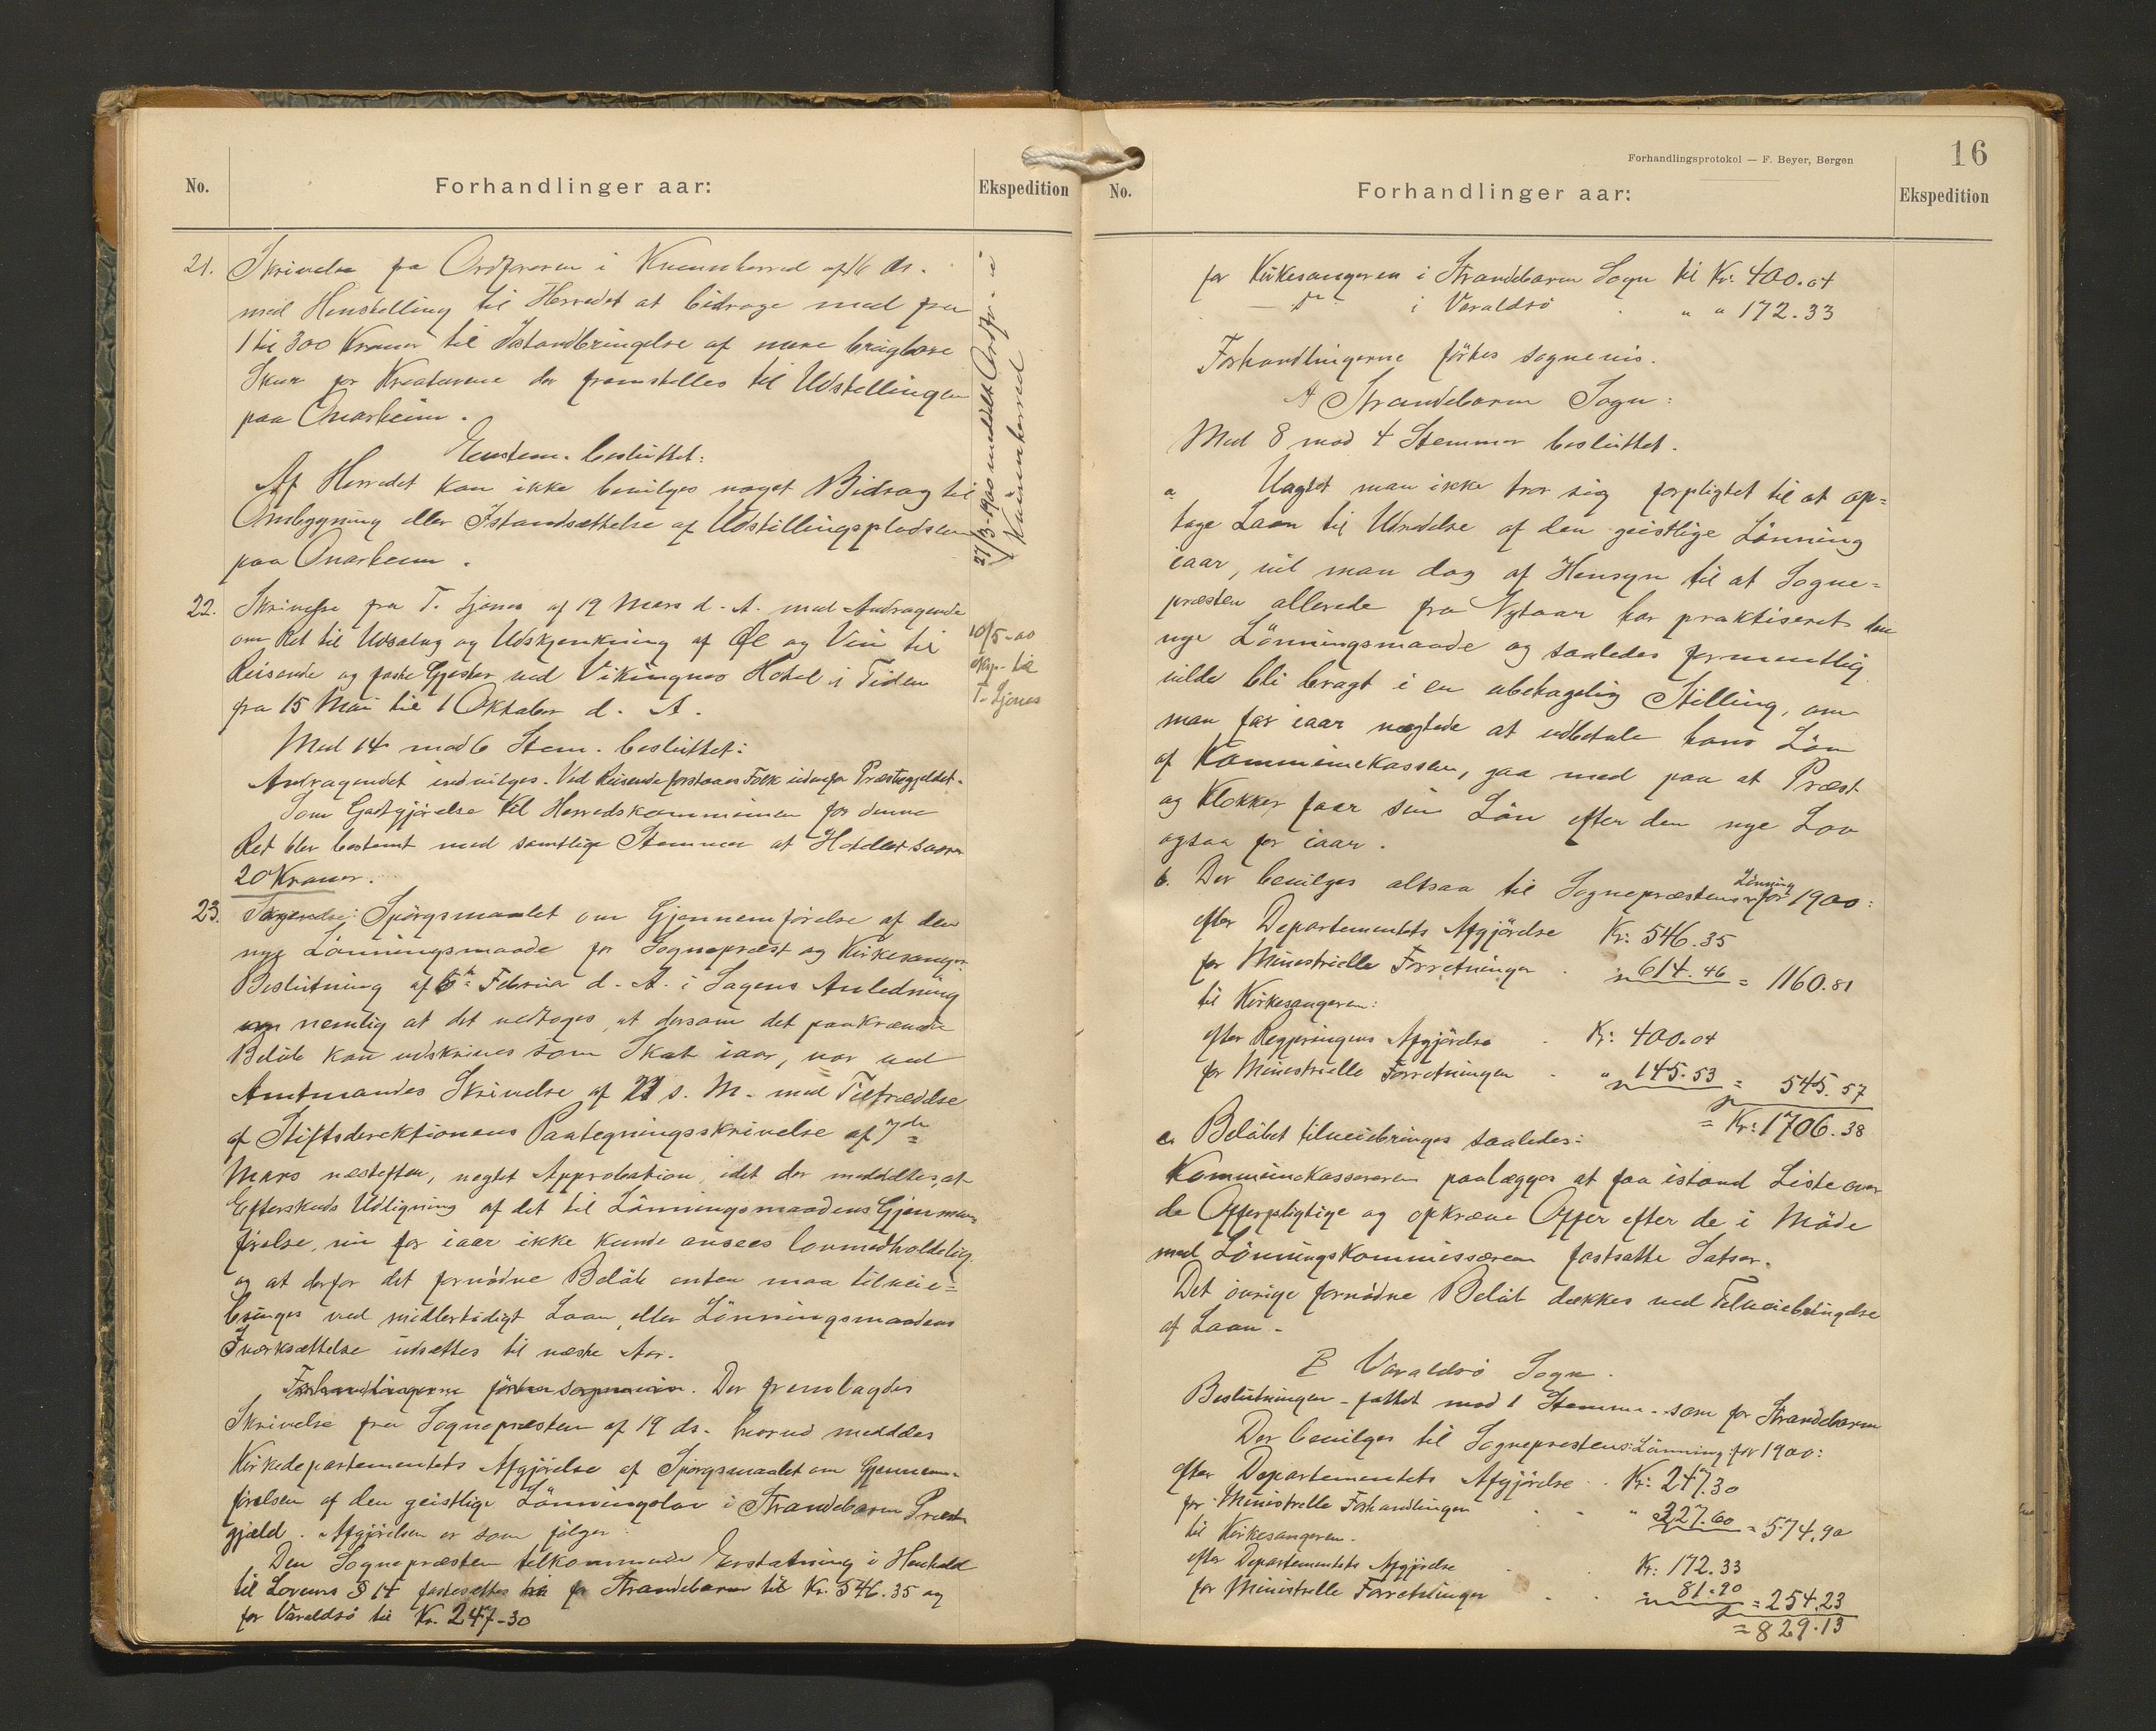 No.
Forhandlinger aar:
Ekspedition
21. Skrivelse fra Ordføreren i Kvinnherred af 16 ds.
med Henstilling til Herredet at bidrage med fra
1 til 300 Kroner til Istandbringelse af mere brugbare
Skur for Kreaturene der fremstilles til Udstillingen
paa Onarheim.
Enstem. besluttet:
Af Herredet kan ikke bevilges noget Bidrag til
Ombygning eller Istandsættelse af Udstillingspladsen
paa Onarheim.
27/3-1900 meddelt Ordfør. i
Kvinnherred
22. Skrivelse fra T. Sjonas af 19 Mars d. A. med Andragende
om Ret til Udsalug og Udskjænkning af Øl og Vin til
Reisende og faste Gjester ved Vikingnes Hotel i Tiden
fra 15 Mai til 1 Oktober d. A.
10/5-00
eksp. til
T. Sjonas
Med 14 mod 6 Stem. besluttet:
Andragendet indvilges. Ved Reisende forstaaes Folk udenfor Præstegjeldet.
Som Godtgjørelse til Herredskommunen for denne
Ret blev bestemt med samtlige Stemmer at Hotellet svarer
20 Kroner.
23. Spørgsmaalet om Gjennemførelse af den
nye Lønningsmaade for Sogneprest og Kirkesanger.
Beslutning af 6te Februar d. A. i Sagens Anledning
nemlig at det vedtoges, at dersom det paakrævede
Beløb kan udskrives som Skat iaar, var ved
Amtmandes Skrivelse af 21 s. M. med Tiltrædelse
af Stiftsdirektionens Paategningsskrivelse af 7de
Mars næstefter, negtet Approbation, idet der meddeltes, at
Efterskuds Udligning af det til Lønningsmaadens Gjennem-
førelse, nu for iaar ikke kunde ansees lovmedholdelig
og at derfor det fornødne Beløb enten maa tilveie-
bringes ved midlertidigt Laan, eller Lønningsmaadens
Iværksættelse udsættes til næste Aar.
Forhandlingerne førtes sognevis. Der fremlagdes
Skrivelse fra Sognepresten af 19 ds. hvorved meddeles
Kirkedepartementets Afgjørelse af Spørgsmaalet om Gjennem-
førelsen af den geistlige Lønningslov i Strandebarm Præste
gjæld. Afgjørelsen er som følger:
Den Sognepresten tilkommende Erstatning i Henhold
til Lovens § 14 fastsættes for Strandebarm til Kr. 546.35 og
for Varaldsø til Kr. 247-30
Forhandlingsprotokol — F. Beyer, Bergen
16
No.
Forhandlinger aar:
Ekspedition
for Kirkesangeren i Strandebarm Sogn til Kr. 400.04
— do — i Varaldsø " " 172.33
Forhandlingerne førtes sognevis.
A Strandebarm Sogn:
Med 8 mod 4 Stemmer besluttet.
a. Uagtet man ikke tror sig forpligtet til at op-
tage Laan til Udredelse af den geistlige Lønning
iaar, vil man dog af Hensyn til at Sogne-
præsten allerede fra Nytaar har praktiseret den
nye Lønningsmaade og saaledes formentlig
vilde bli bragt i en ubehagelig Stilling, om
man for iaar nægtede at udbetale hans Løn
af Kommunekassen, gaa med paa at Præst
og Klokker faar sin Løn efter den nye Lov
ogsaa for iaar.
b. Der bevilges altsaa til Sogneprestens Lønning for 1900:
efter Departementets Afgjørelse Kr. 546.35
for Ministrielle Forretninger . " 614.46 = 1160.81
til Kirkesangeren:
efter Regjeringens Afgjørelse . Kr. 400.04
for Ministrielle Forretninger . " 145.53 = 545.57
= Kr. 1706.38
c. Beløbet tilveiebringes saaledes:
Kommunekassereren paalægges at faa istand Liste over
de Offerpligtige og opkræve Offer efter de i Møde
med Lønningskommissæren fastsatte Satser.
Det øvrige fornødne Beløb dækkes ved Tilveiebringelse
af Laan.
B Varaldsø Sogn.
Beslutningen - fattet mod 1 Stemme - som for Strandebarm
Der bevilges til Sogneprestens Lønning for 1900:
efter Departementets Afgjørelse . . Kr. 247.30
for Ministrelle Forhandlinger . . . " 327.60 = 574.90
til Kirkesangeren.
efter Departementets Afgjørelse . . Kr. 172.33
for Ministrelle Forretninger . . " 81.90 = 254.23
= 829.13